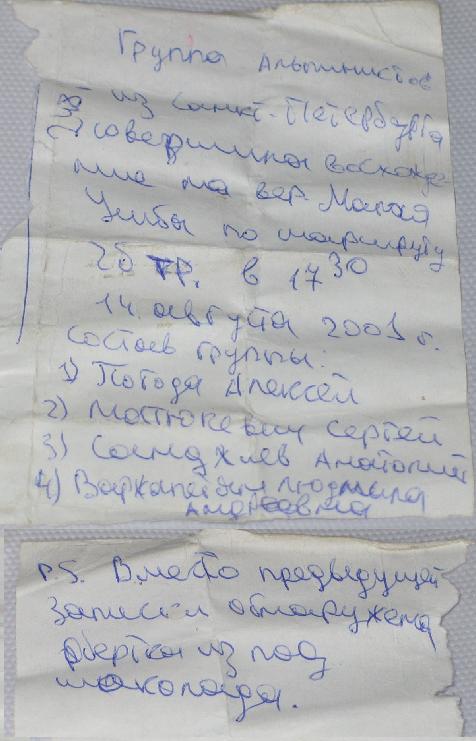 Группа альпинистов
из Санкт-Петербурга
совершила восхожде-
ние на вер. Малая
по маршруту
2б тр. в 17 30
14 августа 2001 г.
состав группы:
1) Погода Алексей
2) Матюкевич Сергей
3) Анатолий
4) Людмила
Андреевна
P.S. Вместо предыдущей
записки обнаружена
обертка из под
шоколада.